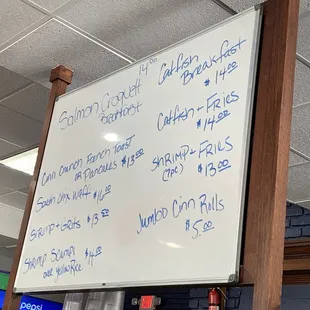 Salmon Croquett 14.00
Breakfast
Cinn Crunch French Toast
OR Pancakes $13.00
South Vnx Waff $16.00
Shrimp + Grits $13.00
Shrimp Scampi
over yellow Rice $14.00
Catfish
Breakfast
$14.00
Catfish + Fries
$14.00
Shrimp + Fries
(7pc) $13.00
Jumbo Cinn Rolls
$5.00
pepsi